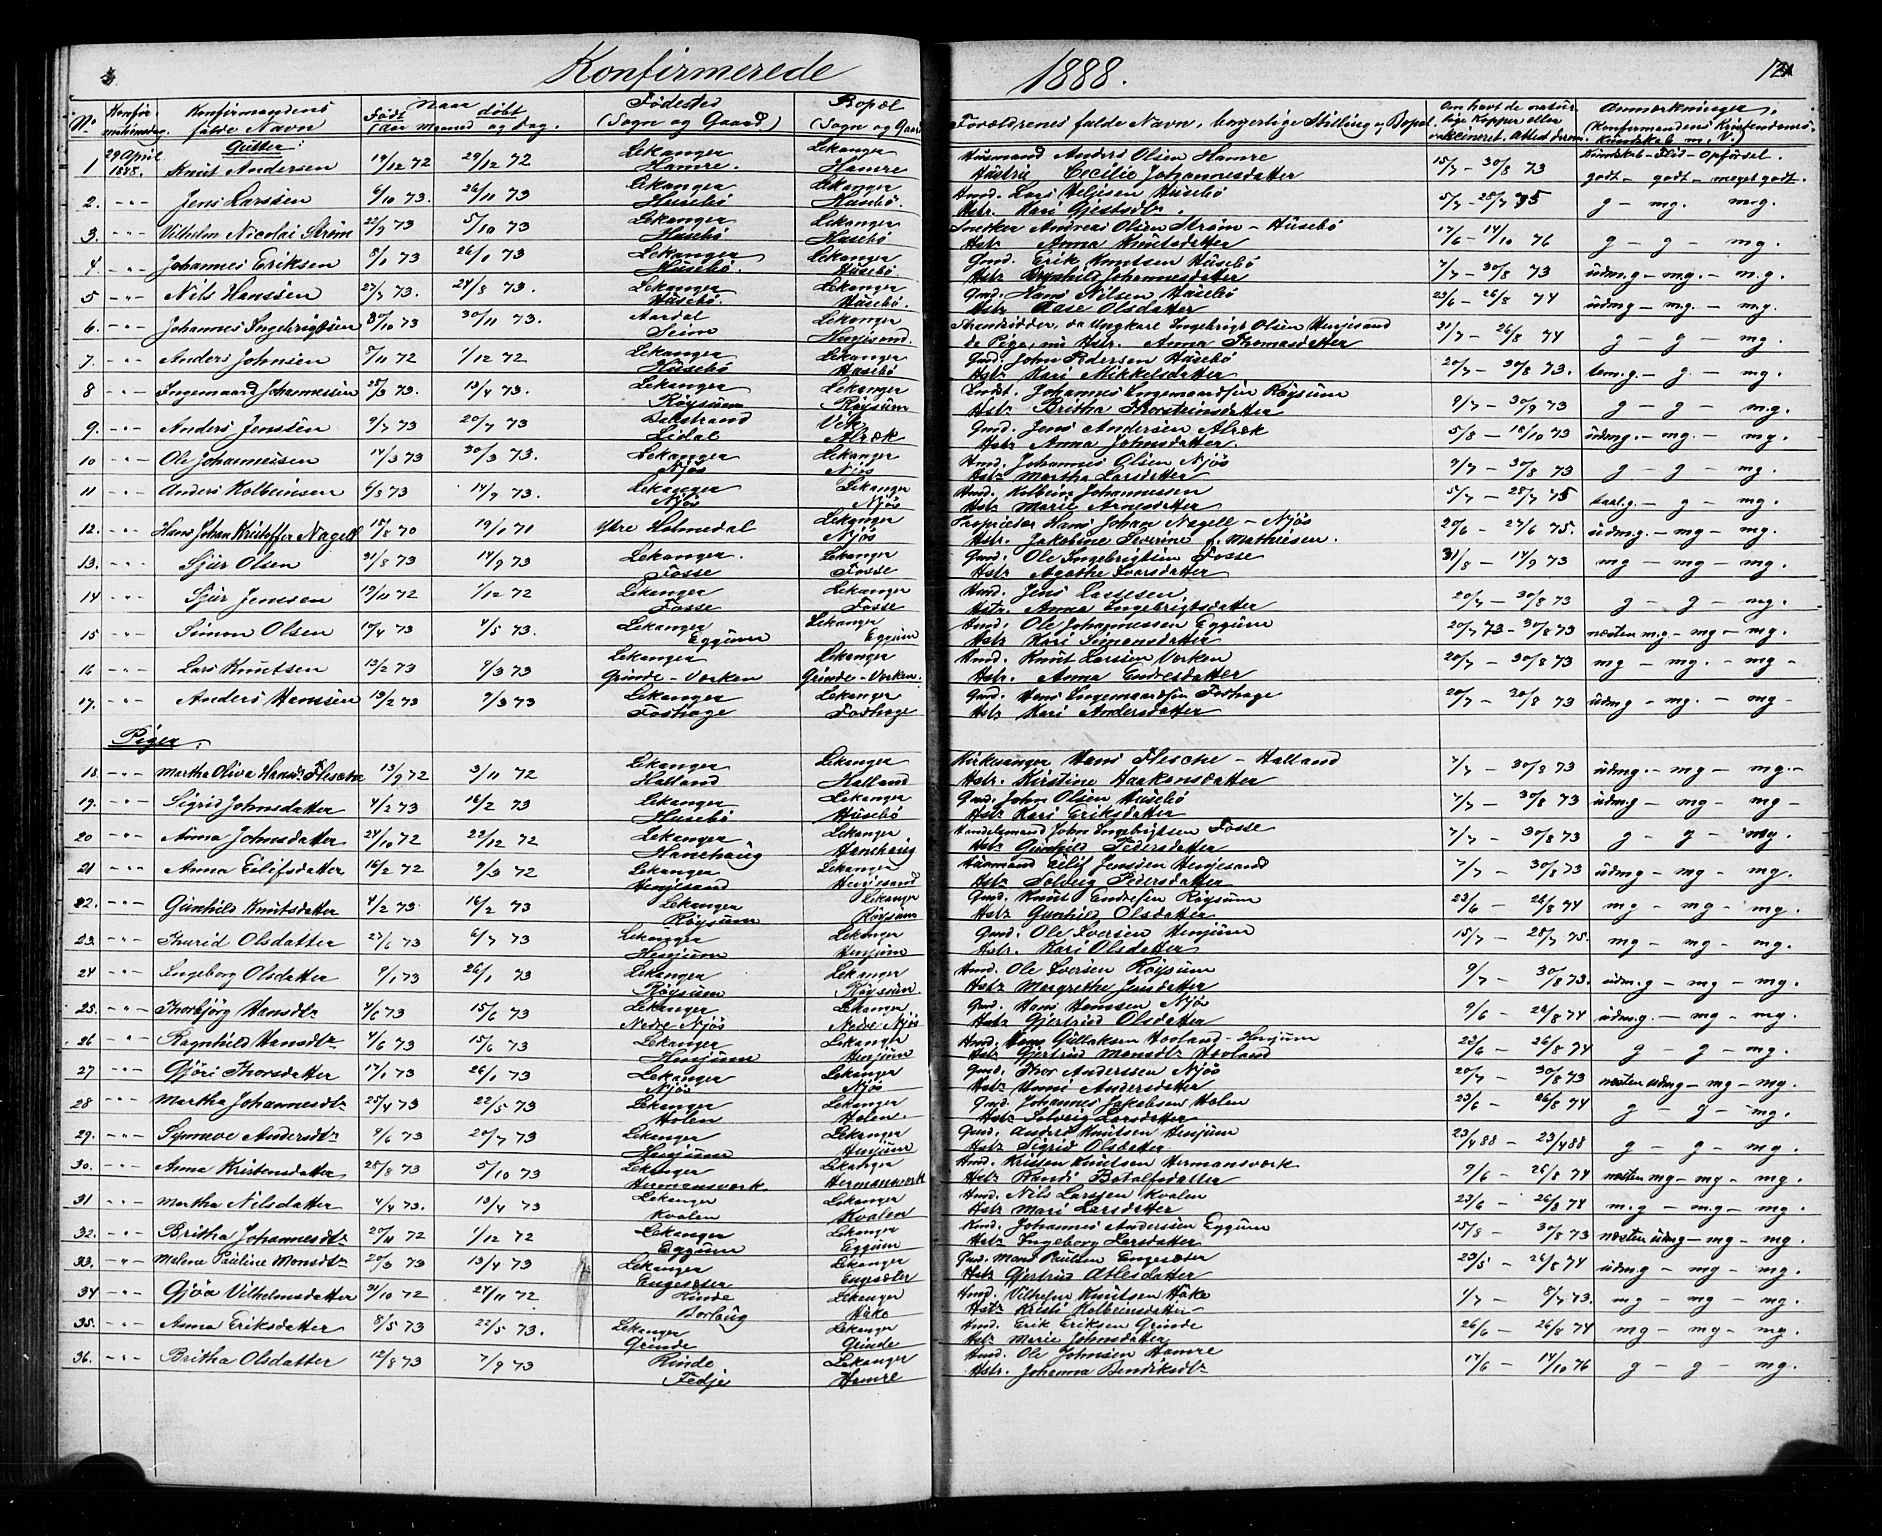 Konfirmerede 1888.
No Konfirmationsdag. Konfirmandens fulde Navn Naar Født døbt (Aar Maaned og Dag.) Fødested (Sogn og Gaard) Bopæl (Sogn og Gaard) Forældrenes fulde Navn, borgerlige Stilling og Bopæl. Anmærkninger,
Gutter:
1 29 April 1888. Knut Andersen 19/12 72 29/12 72 Lekanger Hamre. Lekanger Hamre Husmand Anders Olsen Hamre Hustru Cecilie Johannesdatter 15/7 – 30/8 73 Kundskab – Flid – Opførsel. godt – godt – meget godt.
2. Jens Larssen 6/10 73. 26/11 73 Lekanger Husebø Lekanger Husebø.
g – mg. mg.
3. Vilhelm Nicolai Strøm 22/9 73 5/10 73 Lekanger Husebø Lekanger Husebø Snedker Andreas Olsen Strøm – Husebø Hstr Anna Knutsdatter 17/6 – 14/10 76 g – g – mg.
4. Johannes Eriksen 8/1 73 26/1 73 Lekanger Husebø. Lekanger Husebø. Gmd. Erik Knutsen Husebø Hstr Brynhild Johannesdatter 7/7 – 30/8 73 udm.g – m.g. – m.g.
5 Nils Hanssen 27/7 73. 24/8 73. Lekanger Husebø Lekanger Husebø. Gmd. Hans Nilsen Husebø Hstr Aase Olsdatter 23/6 – 26/8 74 udmg – mg. – mg.
6. Johannes Ingebrigtsen 8/10 73 30/11 73. Aardal Seim Lekanger Henjesand. Strandsidder, da Ungkarl Ingebrigt Olsen Henjesand da Pige, nu Hstr. Anna Thomasdatter 21/7 – 26/8 74 g – g – mg.
7. Anders Johnsen 5/11 72 1/12 72 Lekanger Husebø Lekanger Husebø Gmd. John Pedersen Husebø Hstr Kari Mikkelsdatter 20/7 – 30/8 73. tem.g. – g – mg.
8 Ingemaard Johannessen 25/3 73. 13/4 73. Lekanger Røysum Lekanger Røysum Johannes Ingemaardsen Røysum Hstr Britha Thorsteinsdatter 9/7 – 30/9 73 g – g – m.g.
9. Anders Jenssen 9/7 73 20/7 73 Balestrand Lidal Vik Alræk Gmd. Jens Andersen Alræk Hstr Anna Johnsdatter. 5/8 – 18/10 73 udmg. – mg. – mg.
10 Ole Johannessen 14/3 73 30/3 73. Lekanger Njøs Lekanger Njøs Hmd. Johannes Olsen Njøs Hstr Martha Larsdatter 7/7 – 30/8 73 g – g – mg.
11 Anders Kolbeinsen 6/8 73 14/9 73. Lekanger Njøs Lekanger Njøs Hmd. Kolbein Johannessen Hstr Marie Arnesdatter 5/7 – 28/7 75 taal.g – g – mg.
12. Hans Johan Kristoffer Nagell 18/8 70 19/1 71 Ytre Holmedal Lekanger Njøs Proprietær Hans Johan Nagell – Njøs Hstr. Jakobine Severine f. Mathiesen. 20/6 – 24/6 75. udm.g. – mg – mg.
13. Sjur Olsen 21/8 73 14/9 73 Lekanger. Fosse Lekanger Fosse Gmd. Ole Ingebrigtsen Fosse Hstr Agathe Ivarsdatter 31/8 – 14/9 73 mg – mg – mg.
14 Sjur Jenssen 19/11 72 1/12 72 Lekanger Fosse Lekanger Fosse Hmd. Jens Hstr. Anna Ingebrigtsdatter 20/7 – 30/8 73 g – g – mg.
15 Simon Olsen 10/4 73 4/5 73. Lekanger Eggum Lekanger Eggum Hmd. Ole Johannessen Eggum Hstr Kari Simonsdatter 20/7 73 – 30/8 73 næsten m.g – mg – mg.
16 Lars Knutsen 13/2 73 9/3 73 Lekanger Grinde-Verken Lekanger Grinde-Verken. Hmd. Knut Larssen Verken Hstr. Anna Endresdatter 20/7 – 30/8 73 mg – mg. – mg –
17. Anders Hanssen 13/2 73 9/3 73 Lekanger Foshage Lekanger Foshage Gmd. Hans Ingemaardsen Foshage Hstr Kari Andersdatter 20/7 – 30/8 73 udmg – mg. – mg –
Piger.
18. Martha Oliva Hansdr Flesche 13/9 72 3/11 72 Lekanger Hatland Lekanger Hatland Kirkesanger Hans Flesche – Hatland Hstr. Kirstine Haakonsdatter 7/7 – 30/8 73 udmg. – mg – mg. –
19. Sigrid Johnsdatter 4/2 73 16/2 73 Lekanger Husebø Lekanger Husebø Gmd. John Olsen Husebø Hstr Kari Eriksdatter 7/7 – 30/8 73 udm.g – mg – mg –
20 Anna Johnsdatter 24/10 72 22/12 72 Lekanger Hanehaug Lekanger Hanehaug Handelsmand John Ingebrigtsen Fosse Hstr Gunhild Pedersdatter 7/7 – 30/8 73 g – g – mg.
21 Anna Eilifsdatter 16/2 72 9/3 72 Lekanger Henjesand Lekanger Henjesand Husmand Eilif Jenssen Henjesand Hstr Solveig Pedersdatter 7/7 – 30/8 73 udmg – mg – mg.
22. Gunhild Knutsdatter 4/2 73 16/2 73 Lekanger Røysum Lekanger Røysum Gmd. Knut Endresen Røysum Hstr Gunhild Olsdatter 23/6 – 26/8 74 mg – mg – mg.
23. Thurid Olsdatter 27/6 73 6/7 73 Lekanger Henjum Lekanger Henjum Gmd. Ole Iversen Henjum Hstr. Kari Olsdatter 15/7 – 28/7 75. mg – mg – mg.
24 Ingeborg Olsdatter 9/1 73 26/1 73 Lekanger Røysum Lekanger Røysum. Hmd. Ole Iversen Røysum Hstr Margrethe Jensdatter 9/7 – 30/8 73. udm.g – mg – mg.
25. Thorbjørg Hansdtr 4/6 73 15/6 73 Lekanger Nedre Njøs Lekanger Nedre Njøs Gmd. Hans Hanssen Njøs Hstr Gjertrud Olsdatter 9/6 – 26/8 74 udm.g. – mg – mg.
26 Ragnhild Hansdtr 4/6 73 15/6 73 Lekanger Henjum Lekanger Henjum Hmd. Hans Gullaksen Hovland – Henjum Hstr Gjertrud Monsdtr Hovland 22/6 – 26/8 74 g – g – mg.
27 Gjøri Thorsdatter 17/1 73 26/1 73 Lekanger Njøs Lekanger Njøs Gmd. Thor Anderssen Njøs Hstr Anni Andersdatter 20/7 – 30/8 73 næsten udmg – mg – mg.
28 Martha Johannesdtr 25/4 73 22/5 73 Lekanger Holen Lekanger Holen. Gmd. Johannes Jakobsen Holen Hstr Solveig Larsdatter 23/6 – 26/8 74 g – g – mg.
29. Synneve Andersdtr 9/6 73 20/7 73 Lekanger Henjum Lekanger Henjum Gmd. Anders Knutsen Henjum Hstr Sigrid Olsdatter 23/4 88 – 23/4 88 g – g – mg.
30. Anna Kristensdatter 28/8 73 5/10 73 Lekanger Hermansværk Lekanger Hermansværk Hmd. Kristen Knutsen Hermansværk Hstr Randi Botolfsdatter 9/6 – 26/8 74 næsten mg – mg – mg.
31 Martha Nilsdatter 4/4 73. 13/4 73 Lekanger Kvalen Lekanger Kvalen Hmd. Nils Larssen Kvalen Hstr Mari Larsdatter 23/6 – 26/8 74 m.g – mg – mg.
32. Britha Johannesdtr 20/11 72 1/12 72 Lekanger Eggum Lekanger Eggum Hmd. Johannes Anderssen Eggum Hstr Ingeborg Larsdatter 15/8 – 30/8 73 næsten udmg – mg – mg.
33. Malene Pauline Monsdtr 20/3 73 13/4 73 Lekanger Engesæter Lekanger Engesæter Gmd. Mons Paulsen Engesæter Hstr Gjertrud Atlesdatter 23/5 – 26/8 74 udm.g – mg – mg.
34 Gjøa Vilhelmsdatter 31/10 72 24/11 72 Rinde Borlaug Lekanger Hmd. Vilhelm Knutsen Hstr Kristi Kolbeinsdatter 4/7 – 8/7 73. mg – mg – mg.
35. Anna Eriksdatter 8/5 73 22/5 73. Lekanger Grinde Lekanger Grinde Hmd. Erik Eriksen Grinde Hstr Marie Johnsdatter 26/6 – 26/8 74 mg – mg – mg.
36. Britha Olsdatter 12/8 73 7/9 73 Rinde Fedje Lekanger Hamre Hmd. Ole Johnsen Hamre Hstr. Johanna Bendiksdtr 17/6 – 14/10 76 g – g – mg.